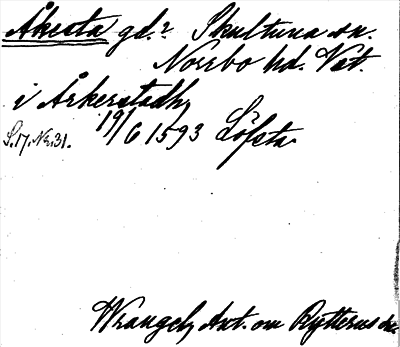 Åkesta gd.? Skultuna sn.
Norrbo hd. Vst.
i Åkerstadh,
19/6 1593 Löfsta
S. 17. Nr. 31.
Wrangel, Ant. om Rytterns sn.